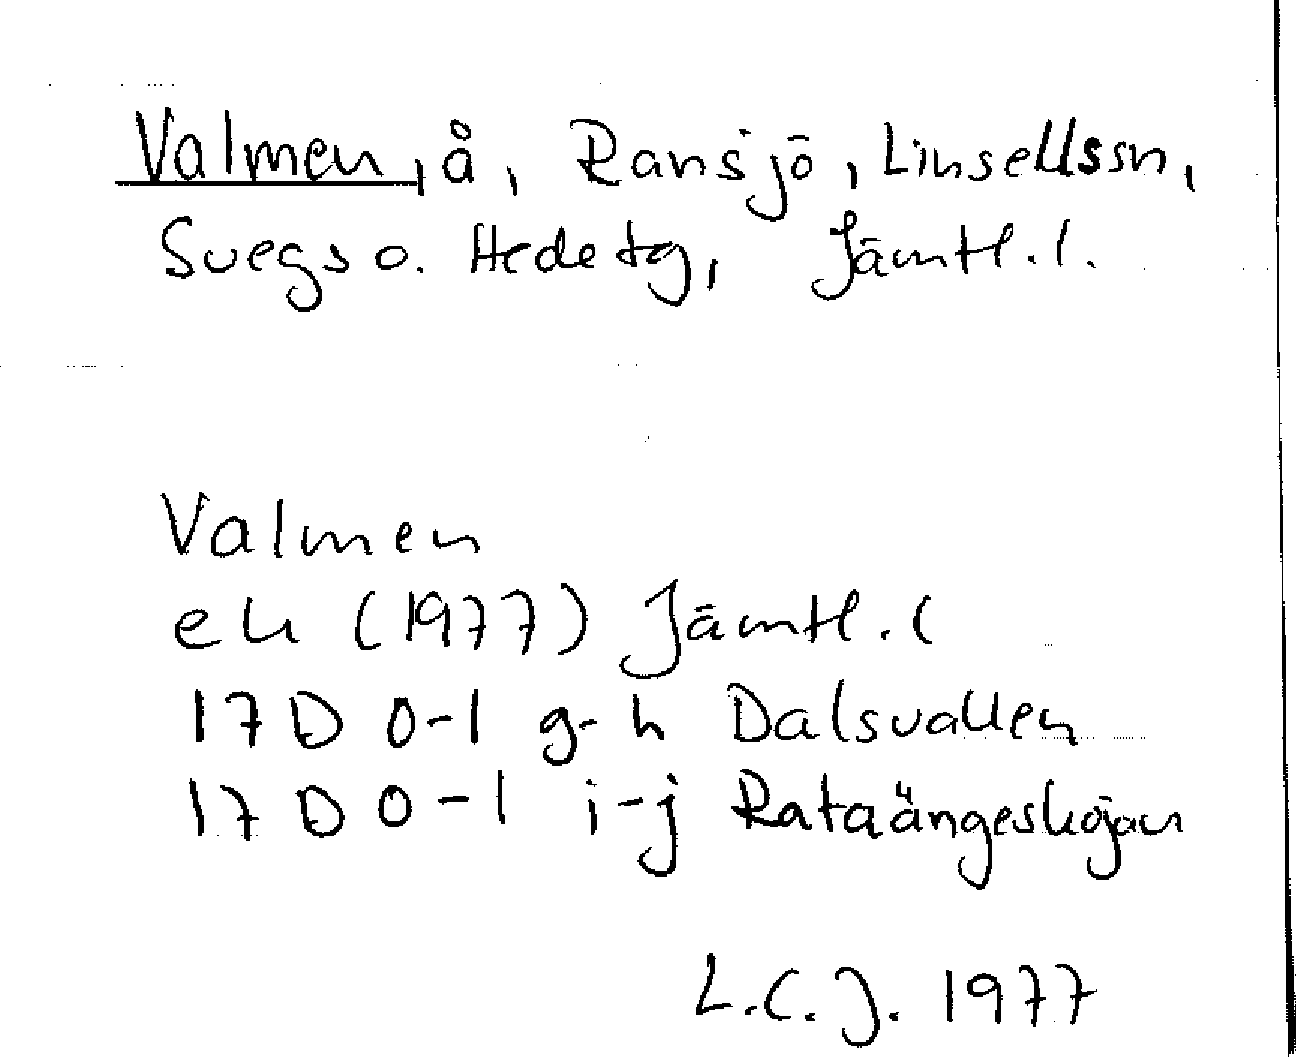 Valmen, å, Ransjö, Linsellssn,
Svegs o. Hede tg, Jämtl. l.
Valmen
ek (1977) Jämtl. l
17 D 0-1 g-h Dalsvallen
17 D 0-1 i-j Rataängeskojan
L.C.J. 1977